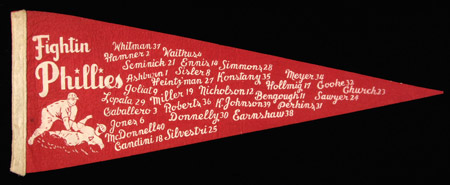 Fightin
Phillies
Whitman 37
Hamner 2 Waitkus 4
Seminick 21 Ennis 14 Simmons 28
Ashburn 1 Sisler 8 Meyer 34
Heintzman 27 Konstanty 35 Goohe 32
Goliat 9 Hollmig 17 Church 23
Lopata 29 Miller 19 Nicholson 12 Bengough 11 Sawyer 24
Caballero 3 Roberts 36 K. Johnson 39 Perkins 31
Jones 6 Donnelly 30 Earnshaw 38
McDonnell 40
Candini 18 Silvestri 25